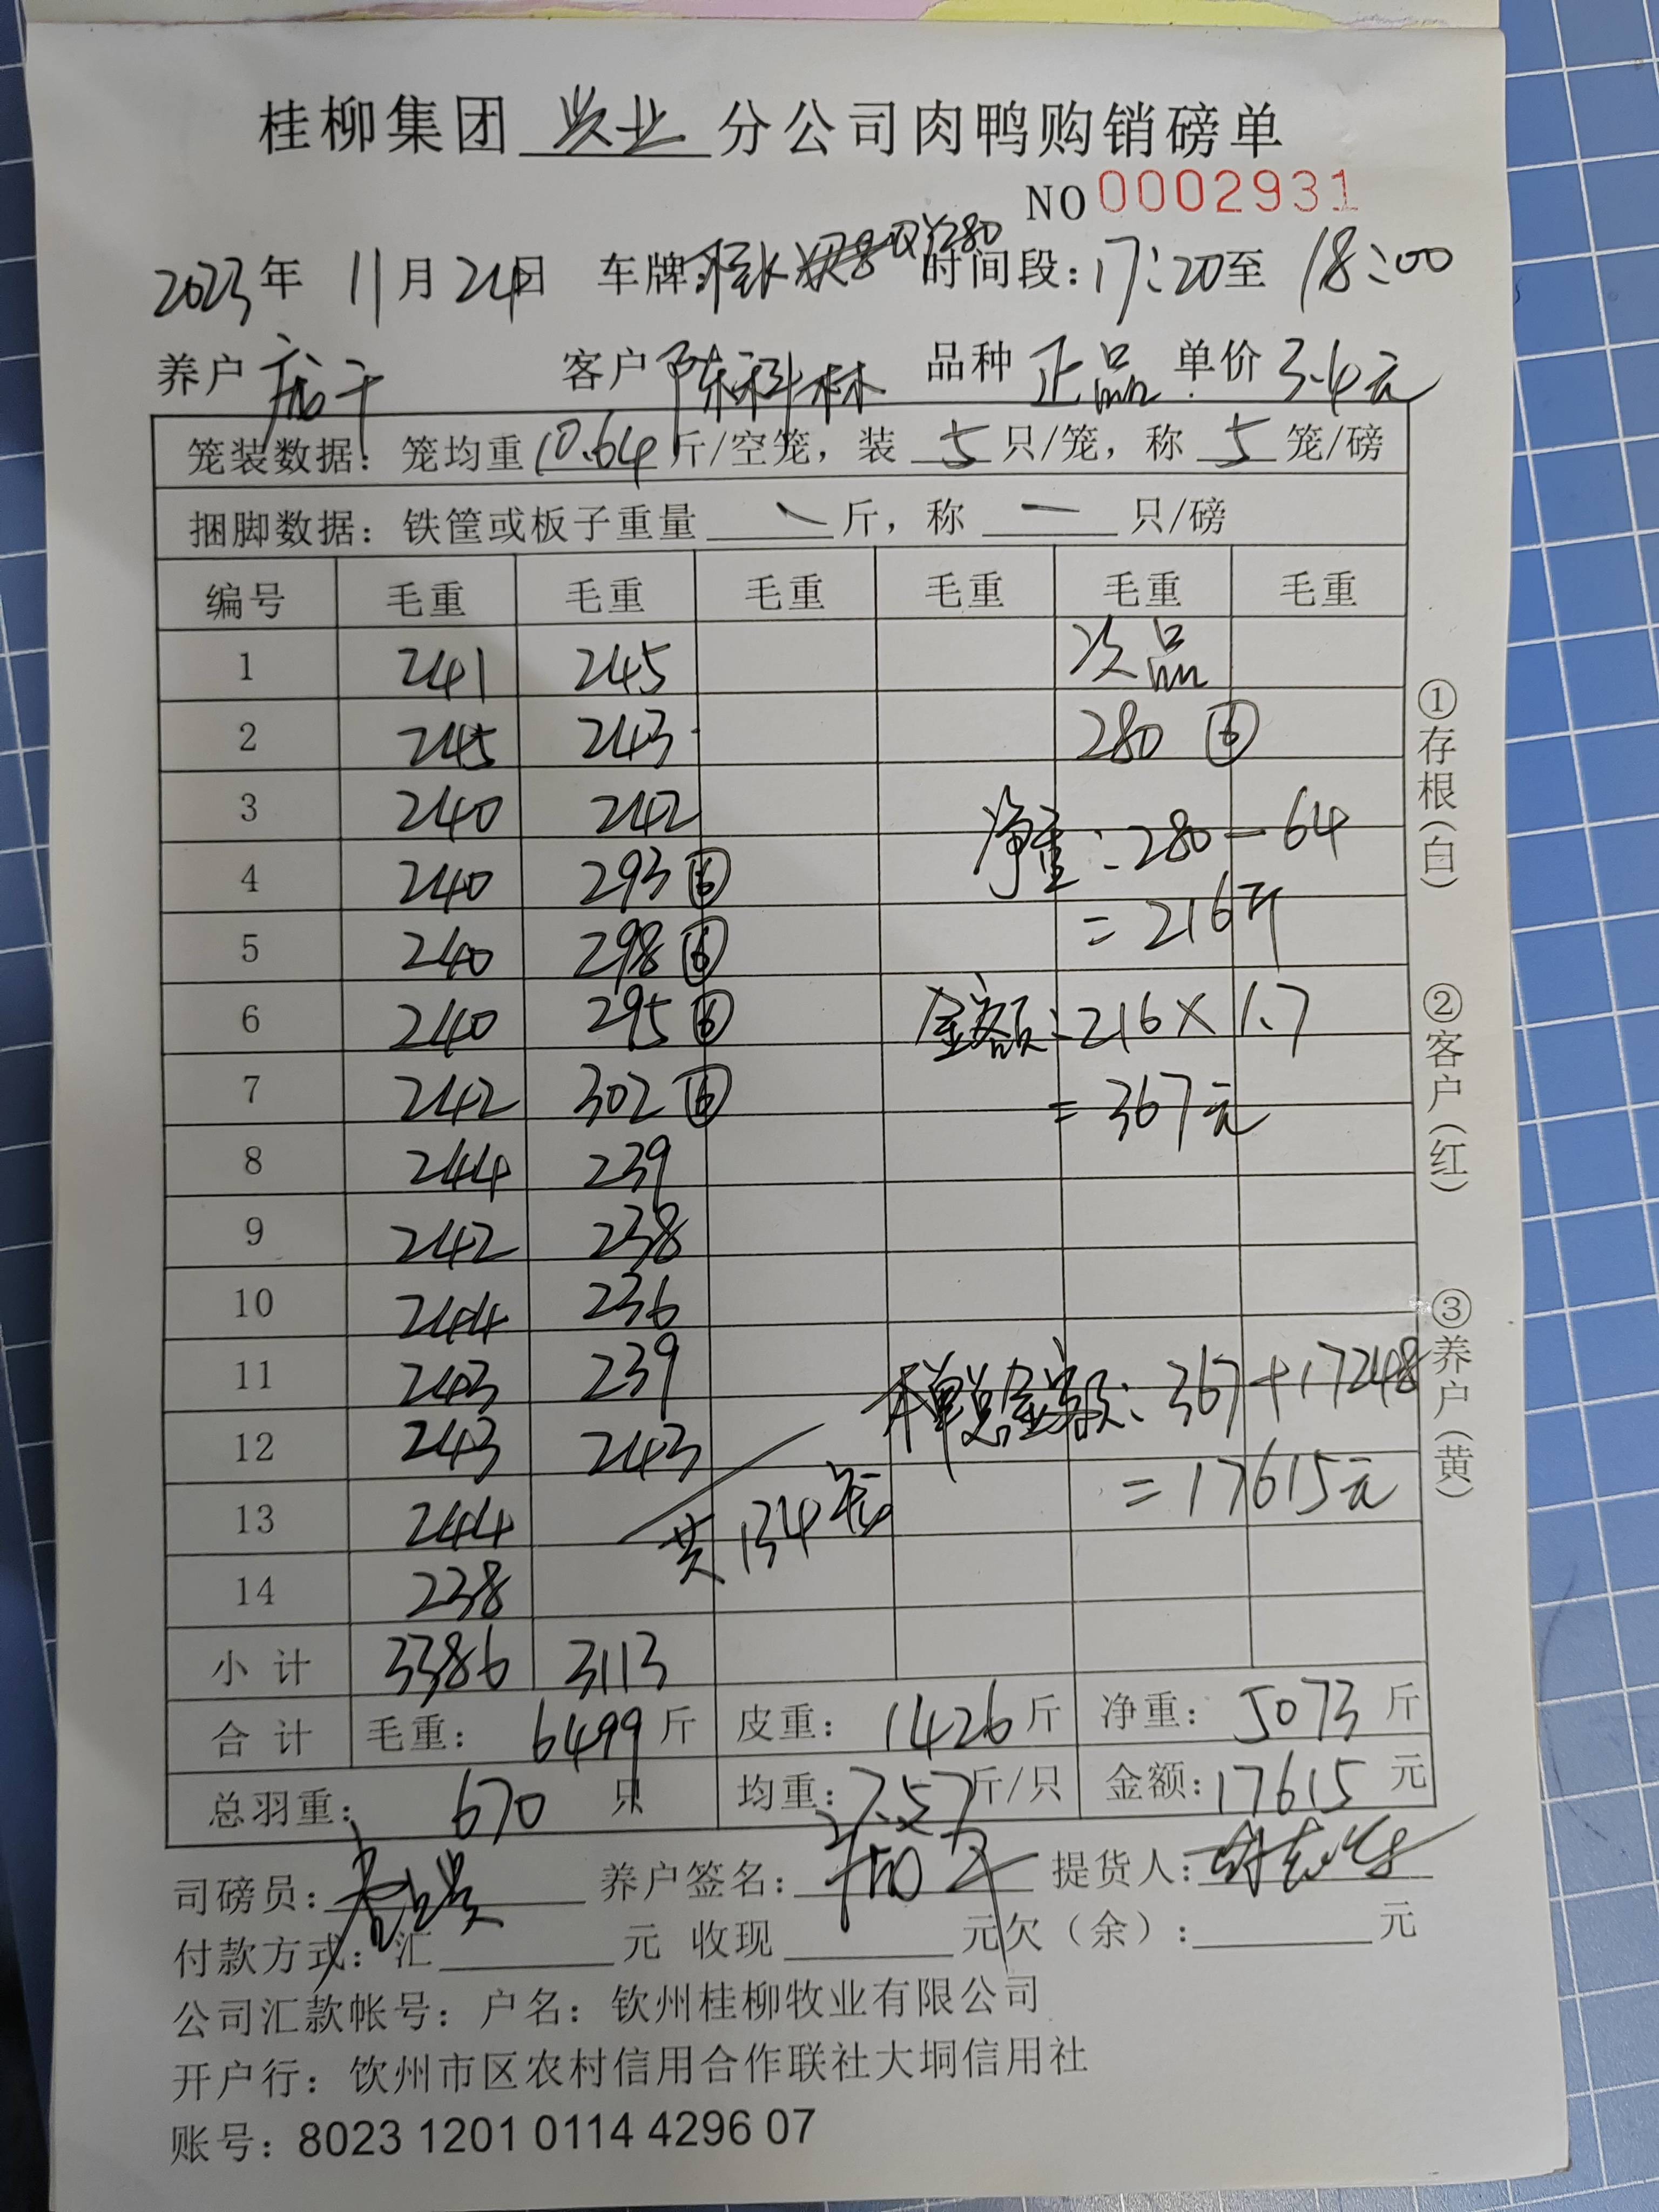 桂柳集团 兴业 分公司肉鸭购销磅单
NO 0002931
2023年 11月24日 车牌: 280 时间段: 17:20至 18:00
养户 客户 陈科林 品种 正品 单价 3.4元
笼装数据: 笼均重 10.64 斤/空笼, 装 5 只/笼, 称 5 笼/磅
捆脚数据: 铁筐或板子重量 一 斤, 称 一 只/磅
编号 毛重 毛重 毛重 毛重 毛重 毛重
1 241 245 次品
2 245 243 280 ⑥
3 240 242
净重: 280-64
4 240 293 ⑥
=216斤
5 240 298 ⑥
6 240 295 ⑥ 金额: 216×1.7
7 242 302 ⑥ =367元
8 244 239
9 242 238
10 244 236
11 243 239 本单总金额: 367+17248
12 243 243
=17615元
13 244 共134笼
14 238
小计 3386 3113
合计 毛重: 6499 斤 皮重: 1426 斤 净重: 5073 斤
总羽重: 670 只 均重: 7.57 斤/只 金额: 17615 元
司磅员: 养户签名: 提货人:
付款方式: 汇 元 收现 元欠(余): 元
公司汇款帐号: 户名: 钦州桂柳牧业有限公司
开户行: 钦州市区农村信用合作联社大垌信用社
账号: 8023 1201 0114 4296 07
①存根(白)
②客户(红)
③养户(黄)